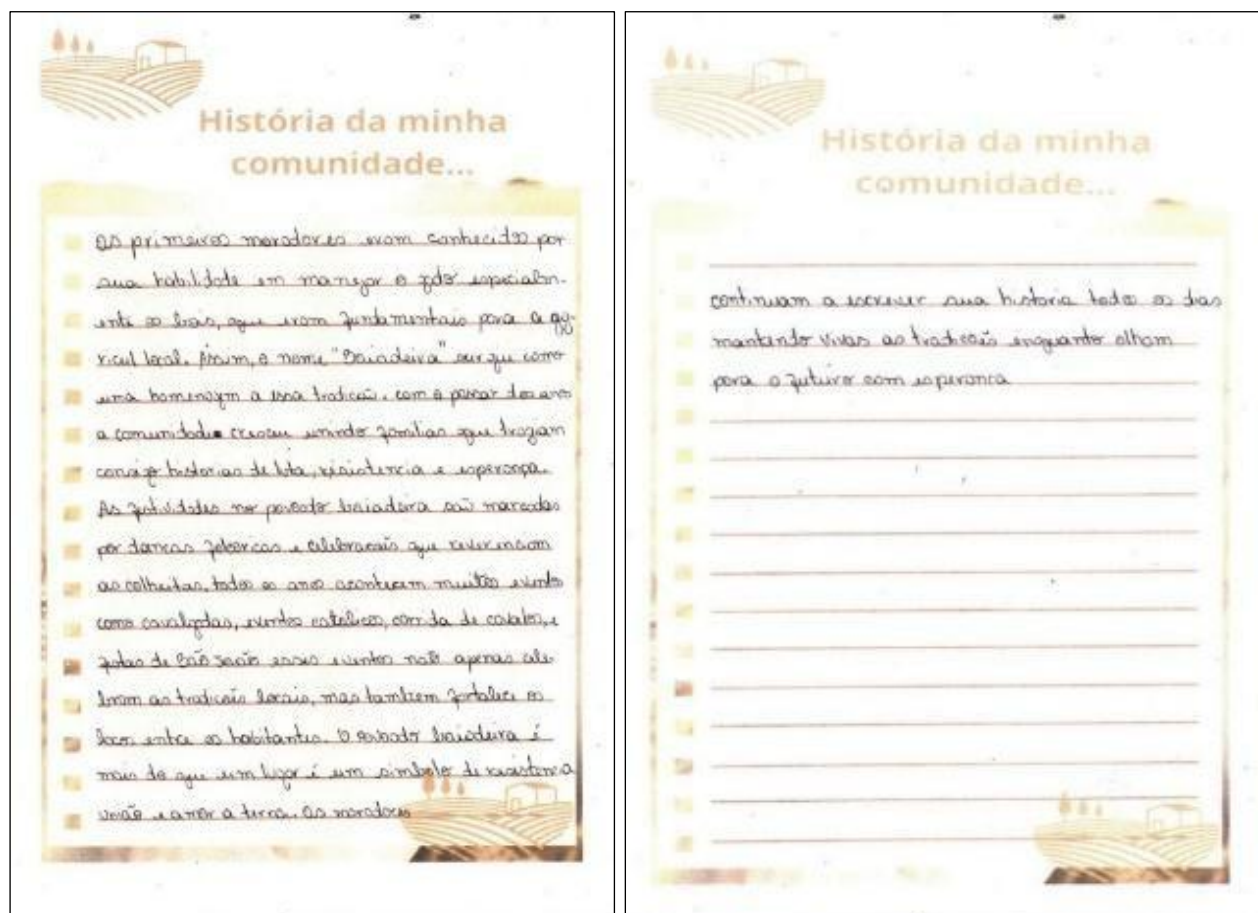 História da minha
comunidade...
os primeiros moradores eram conhecidos por
sua habilidade em manejar o gado especialm-
ente os bois, que eram fundamentais para a ag-
ricul local. Assim, o nome "Boiadeira" surgiu como
uma homenagem a essa tradicão. com o passar dos anos
a comunidade cresceu unindo familias que traziam
consigo historias de luta, resistencia e esperança.
As festividades no povoado boiadeira são marcadas
por dancas folcoricas e celebracois que reverenciam
as colheitas. todos os anos acontecem muitos evento
como cavalgadas, eventos catolicos, corrida de cavalos, e
festas de São João esses eventos não apenas cele-
bram as tradicois locais, mas tambem fortalece os
lacos entre os habitantes. O povoado boiadeira é
mais do que um lugar é um simbolo de resistencia
união e amor a terra. os moradores
História da minha
comunidade...
continuam a escrever sua historia todos os dias
mantendo vivas as tradicois enquanto olham
para o futuro com esperanca